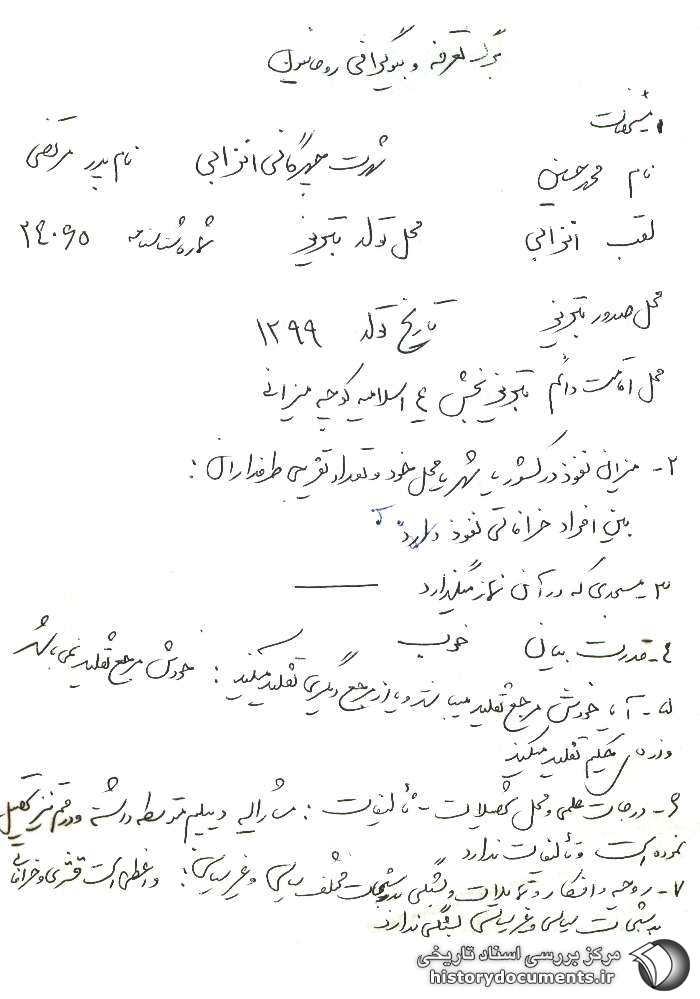 برگ تعرفه و بیوگرافی روحانیون
۱- مشخصات
نام محمد حسین شهرت چهرگانی انزابی نام پدر مرتضی
لقب انزابی محل تولد تبریز شماره شناسنامه ۲۴۰۶۵
محل صدور تبریز تاریخ تولد ۱۲۹۹
محل اقامت دائم تبریز بخش ۴ اسلامیه کوچه میزانی
۲- میزان نفوذ در کشور یا شهر یا محل خود و تعداد تقریبی طرفداران :
بین افراد خرافاتی نفوذ دارد
۳- مسجدی که در آن نماز میگذارد ———
۴- قدرت بیان خوب
۵- آیا خودش مرجع تقلید میباشد و یا از مرجع دیگری تقلید میکنید : خودش مرجع تقلید نمی باشد
و از حکیم تقلید میکند
۶- درجات علمی و محل تحصیلات - تألیفات : مشارالیه دیپلم متوسطه داشته و در قم نیز تحصیل
نموده است و تألیفات ندارد
۷- روحیه و افکار و تمایلات و بستگی بدستجات مختلف سیاسی و غیر سیاسی : واعظی است قشری و خرافاتی
بدستجات سیاسی و غیر سیاسی بستگی ندارد
مرکز بررسی اسناد تاریخی
historydocuments.ir